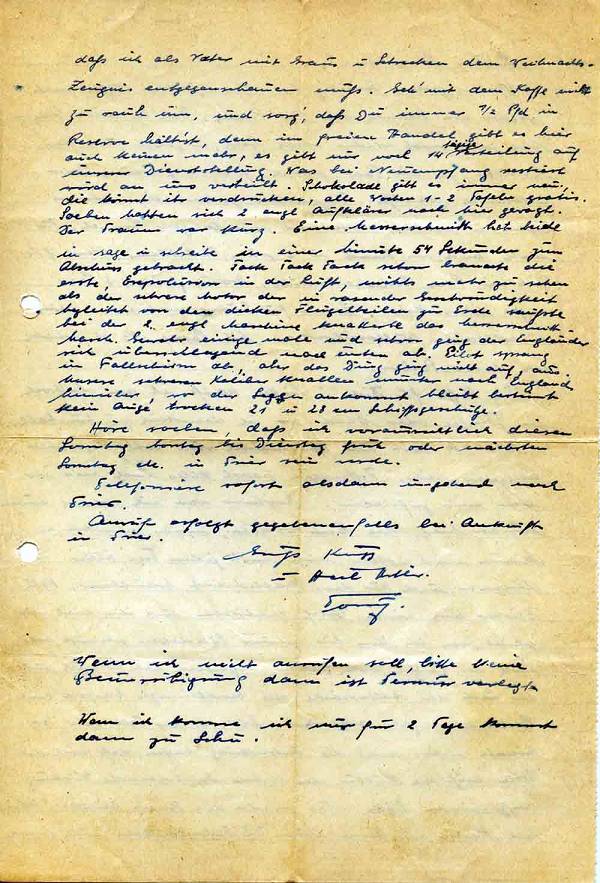 daß ich als Vater mit Graus u Schrecken dem Weihnachts-
Zeugnis entgegenschauen muß. Geh' mit dem Kaffe nicht
zu rauh um, und sorg', daß Du immer 1/2 Pfd in
Reserve hältst, denn im freien Handel gibt es hier
auch keinen mehr, es gibt nur noch 14 tägige Verteilung auf
unserer Dienststellung. Was bei Neuempfang restiert
wird an uns verteilt. Schokolade gibt es immer neu,
die könnt ihr verdrücken, alle Wochen 1-2 Tafeln gratis.
Soeben hatten sich 2 engl Aufklärer nach hier gewagt.
Der Traum war kurz. Eine Messerschmitt hat beide
in sage u schreibe in einer Minute 54 Sekunden zum
Abschuss gebracht. Tack Tack Tack schon brannte die
erste, Explosion in der Luft, nichts mehr zu sehen
als der schwere Motor der in rasender Geschwindigkeit
begleitet von den dicken Flügelteilen zur Erde sauste
bei der 2. engl Maschine knatterte das
sich überschlagend nach unten ab. Einer sprang
im Fallschirm ab, aber das Ding ging nicht auf, aus.
Unsere schweren Kaliber knallen munter nach England
hinüber, wo der Seggen ankommt bleibt bestimmt
kein Auge trocken 21 u 28 cm Schiffsgeschütze.
Höre soeben, daß ich voraussichtlich diesen
Sonntag Montag bis Dienstag früh oder nächsten
Sonntag etc. in Trier sein werde.
Telefoniere sofort alsdann umgehend nach
Trier.
Anruf erfolgt gegebenenfalls bei Ankunft
in Trier.
Gruß Kuss
u Heil Hitler.
Wenn ich nicht anrufen soll, bitte keine
Beunruhigung dann ist Termin verlegt
Wenn ich komme ich nur für 2 Tage kommt
dann zu